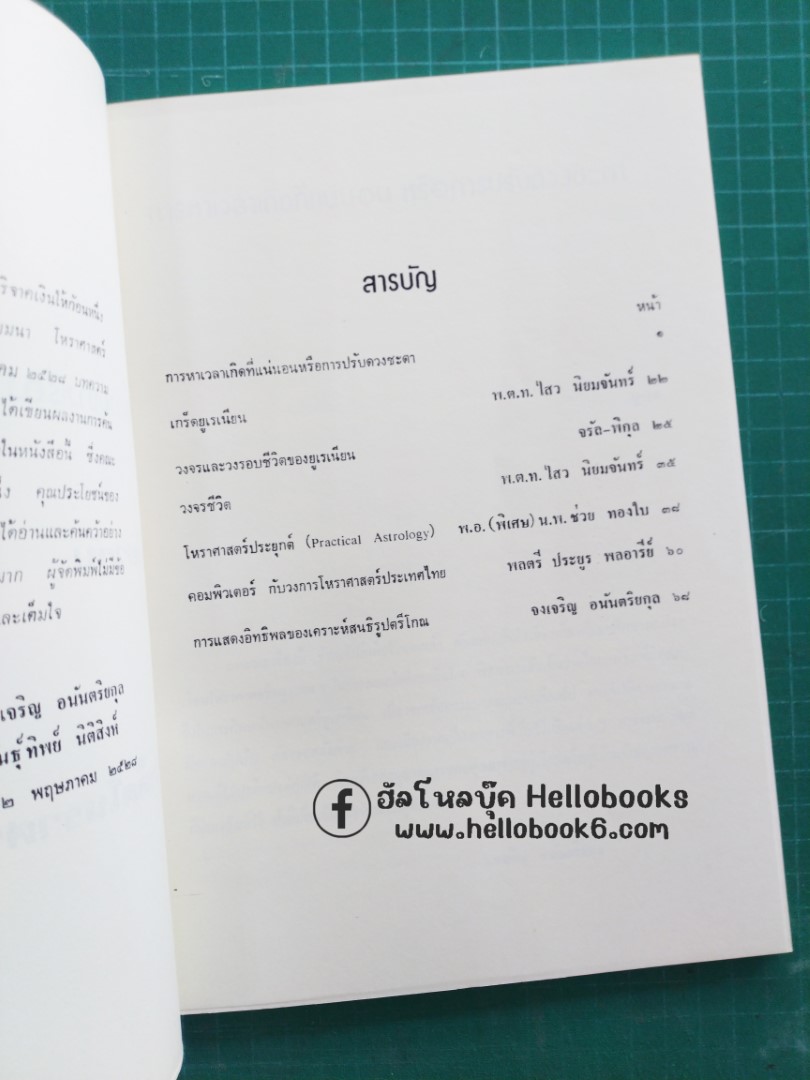 ริจาคเงินให้ก้อนหนึ่ง
มมนา โหราศาสตร์
คม ๒๕๒๘ บทความ
ได้เขียนผลงานการค้น
ในหนังสือนี้ ซึ่งคณะ
คุณประโยชน์ของ
ได้อ่านและค้นคว้าอย่าง
มาก ผู้จัดพิมพ์ไม่มีข้อ
ละเต็มใจ
เจริญ อนันตริยกุล
นธุ์ทิพย์ นิติสิงห์
๒ พฤษภาคม ๒๕๒๘
สารบัญ
หน้า
การหาเวลาเกิดที่แน่นอนหรือการปรับดวงชะตา ๑
เกร็ดยูเรเนียน พ.ต.ท. ไสว นิยมจันทร์ ๒๒
วงจรและวงรอบชีวิตของยูเรเนียน จรัล-พิกุล ๒๕
วงจรชีวิต พ.ต.ท. ไสว นิยมจันทร์ ๓๕
โหราศาสตร์ประยุกต์ (Practical Astrology) พ.อ. (พิเศษ) น.พ. ช่วย ทองใบ ๓๘
คอมพิวเตอร์ กับวงการโหราศาสตร์ประเทศไทย พลตรี ประยูร พลอารีย์ ๖๐
การแสดงอิทธิพลของเคราะห์สนธิรูปตรีโกณ จงเจริญ อนันตริยกุล ๖๘
f ฮัลโหลบุ๊ค Hellobooks
www.hellobook6.com